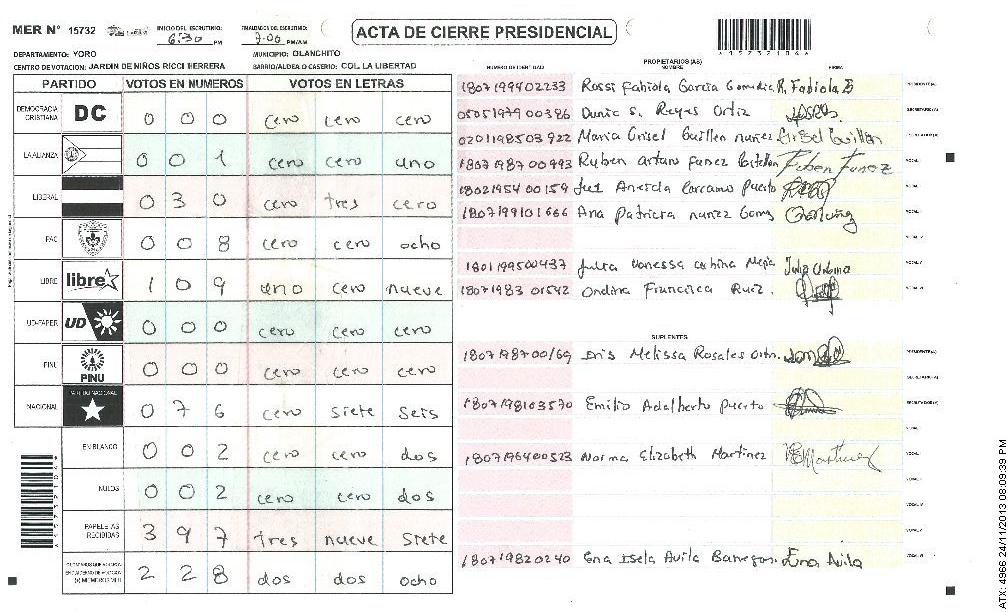 MER N° 15732 INICIO DEL ESCRUTINIO: 6:30 PM FINALIZACION DEL ESCRUTINIO: 7:00 PM/AM ACTA DE CIERRE PRESIDENCIAL
DEPARTAMENTO: YORO MUNICIPIO: OLANCHITO
CENTRO DE VOTACION: JARDIN DE NIÑOS RICCI HERRERA BARRIO/ALDEA O CASERIO: COL. LA LIBERTAD
PARTIDO VOTOS EN NUMEROS VOTOS EN LETRAS
DEMOCRACIA CRISTIANA DC 0 0 0 cero cero cero
LA ALIANZA 0 0 1 cero cero uno
LIBERAL 0 3 0 cero tres cero
PAC 0 0 8 cero cero ocho
LIBRE libre 1 0 9 uno cero nueve
UD-FAPER UD 0 0 0 cero cero cero
PINU PINU 0 0 0 cero cero cero
NACIONAL PARTIDO NACIONAL 0 7 6 cero siete seis
EN BLANCO 0 0 2 cero cero dos
NULOS 0 0 2 cero cero dos
PAPELETAS RECIBIDAS 3 9 7 tres nueve siete
2 2 8 dos dos ocho
PROPIETARIOS (AS)
NUMERO DE IDENTIDAD NOMBRE FIRMA
1807199402233 Rossi Fabiola Garcia R. Fabiola PRESIDENTE(A)
0505197900386 S. Reyes Ortiz SECRETARIO(A)
0201198503922 Maria Grisel Guillen nuñez Grisel Guillen
1807198700993 Ruben arturo funez Ruben Funez VOCAL I
1802195400159 Carcamo puerto
1807199101666 Ana patricia nunez
1801199500437 Julia Vanessa Mejia Julia
1807198301542 Ondina Francisca Ruiz.
SUPLENTES
1807198700169 Iris Melissa Rosales PRESIDENTE(A)
SECRETARIO(A)
1807198103570 Emilio Adalberto puerto
1807196400523 Norma Elizabeth Martinez Martinez
180719820240 Ena Isela Avila Banegas. Ena Avila
ATX: 4966 24/11/2013 08:09:39 PM